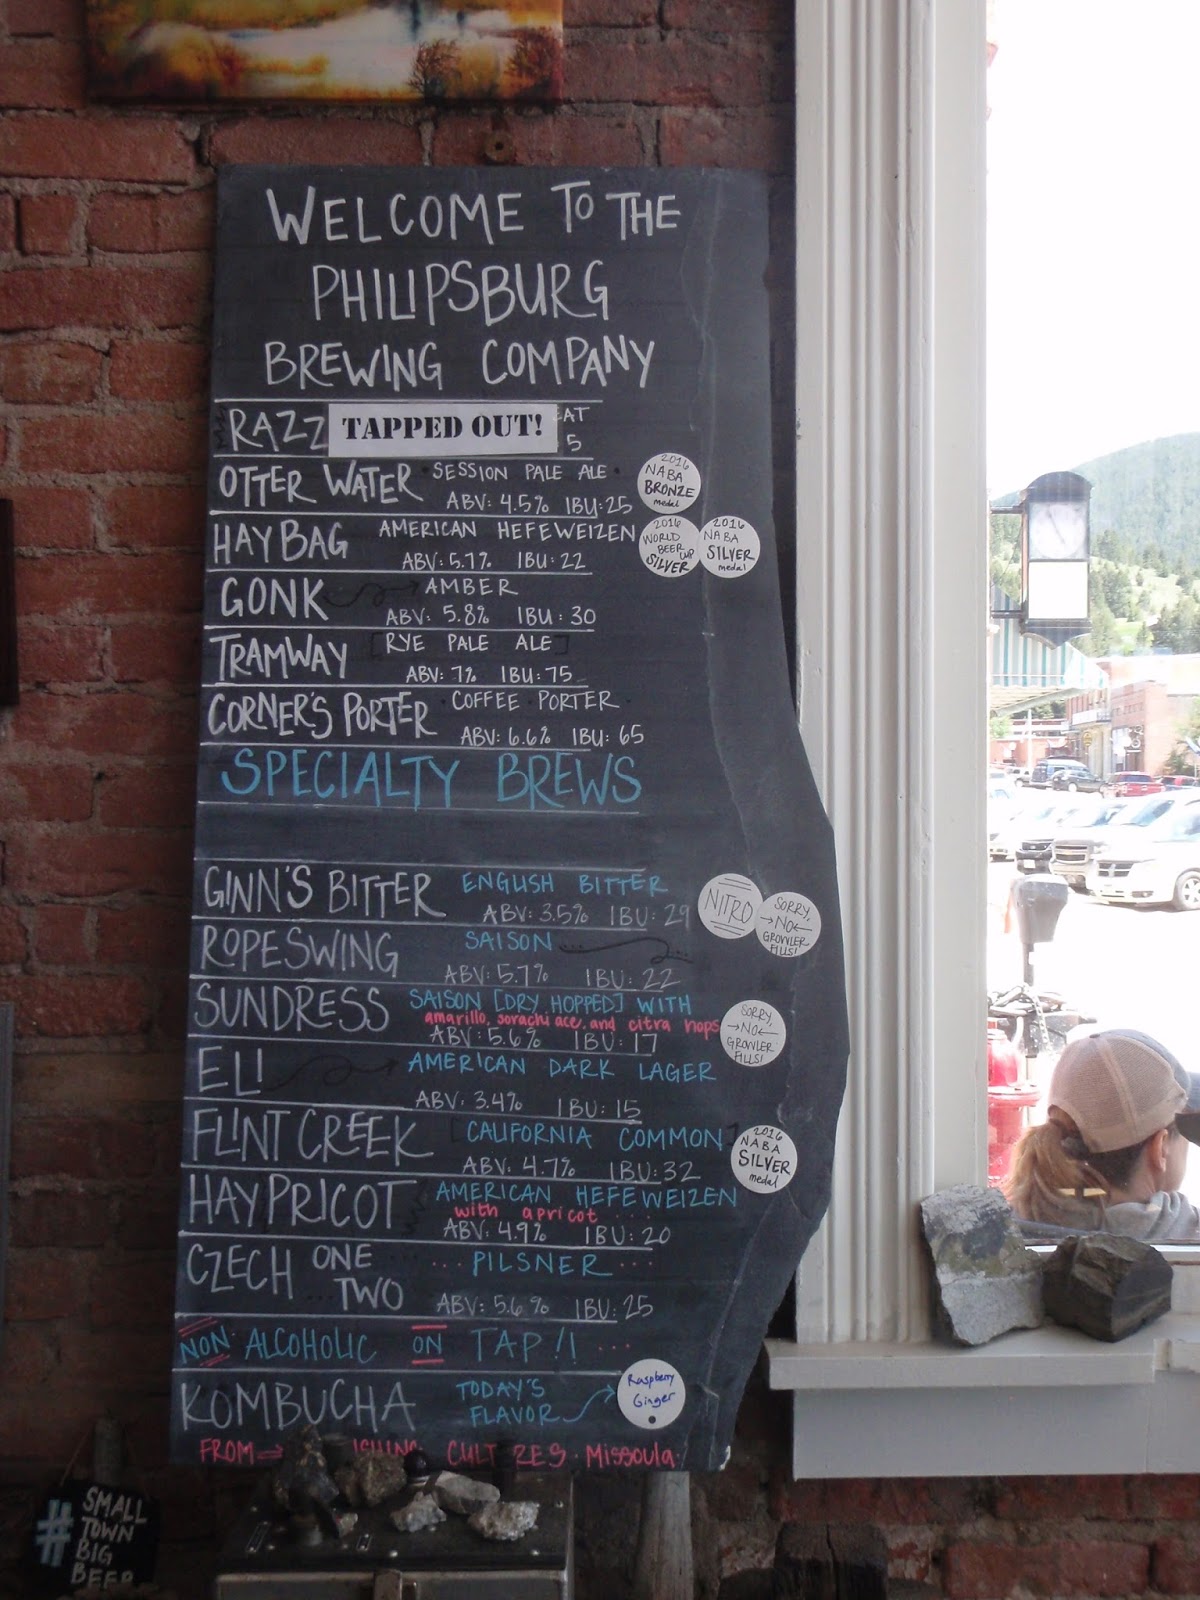 WELCOME TO THE
PHILIPSBURG
BREWING COMPANY
RAZZ TAPPED OUT!
5
OTTER WATER SESSION PALE ALE
ABV: 4.5% IBU: 25
2016 NABA BRONZE medal
HAYBAG AMERICAN HEFEWEIZEN
ABV: 5.7% IBU: 22
2016 WORLD BEER CUP SILVER
2016 NABA SILVER medal
GONK AMBER
ABV: 5.8% IBU: 30
TRAMWAY [RYE PALE ALE]
ABV: 7% IBU: 75
CORNER'S PORTER COFFEE PORTER
ABV: 6.6% IBU: 65
SPECIALTY BREWS
GINN'S BITTER ENGLISH BITTER
ABV: 3.5% IBU: 29
NITRO
SORRY, NO GROWLER FILLS!
ROPESWING SAISON
ABV: 5.7% IBU: 22
SUNDRESS SAISON [DRY HOPPED] WITH
amarillo, sorachi ace, and citra hops
ABV: 5.6% IBU: 17
SORRY, NO GROWLER FILLS!
ELI AMERICAN DARK LAGER
ABV: 3.4% IBU: 15
FLINT CREEK [CALIFORNIA COMMON]
ABV: 4.7% IBU: 32
2016 NABA SILVER medal
HAYPRICOT AMERICAN HEFEWEIZEN
with apricot
ABV: 4.9% IBU: 20
CZECH ONE TWO ... PILSNER ...
ABV: 5.6% IBU: 25
NON ALCOHOLIC ON TAP!! ...
KOMBUCHA TODAY'S FLAVOR
Raspberry Ginger
FROM Missoula
#SMALL
TOWN
BIG
BEER